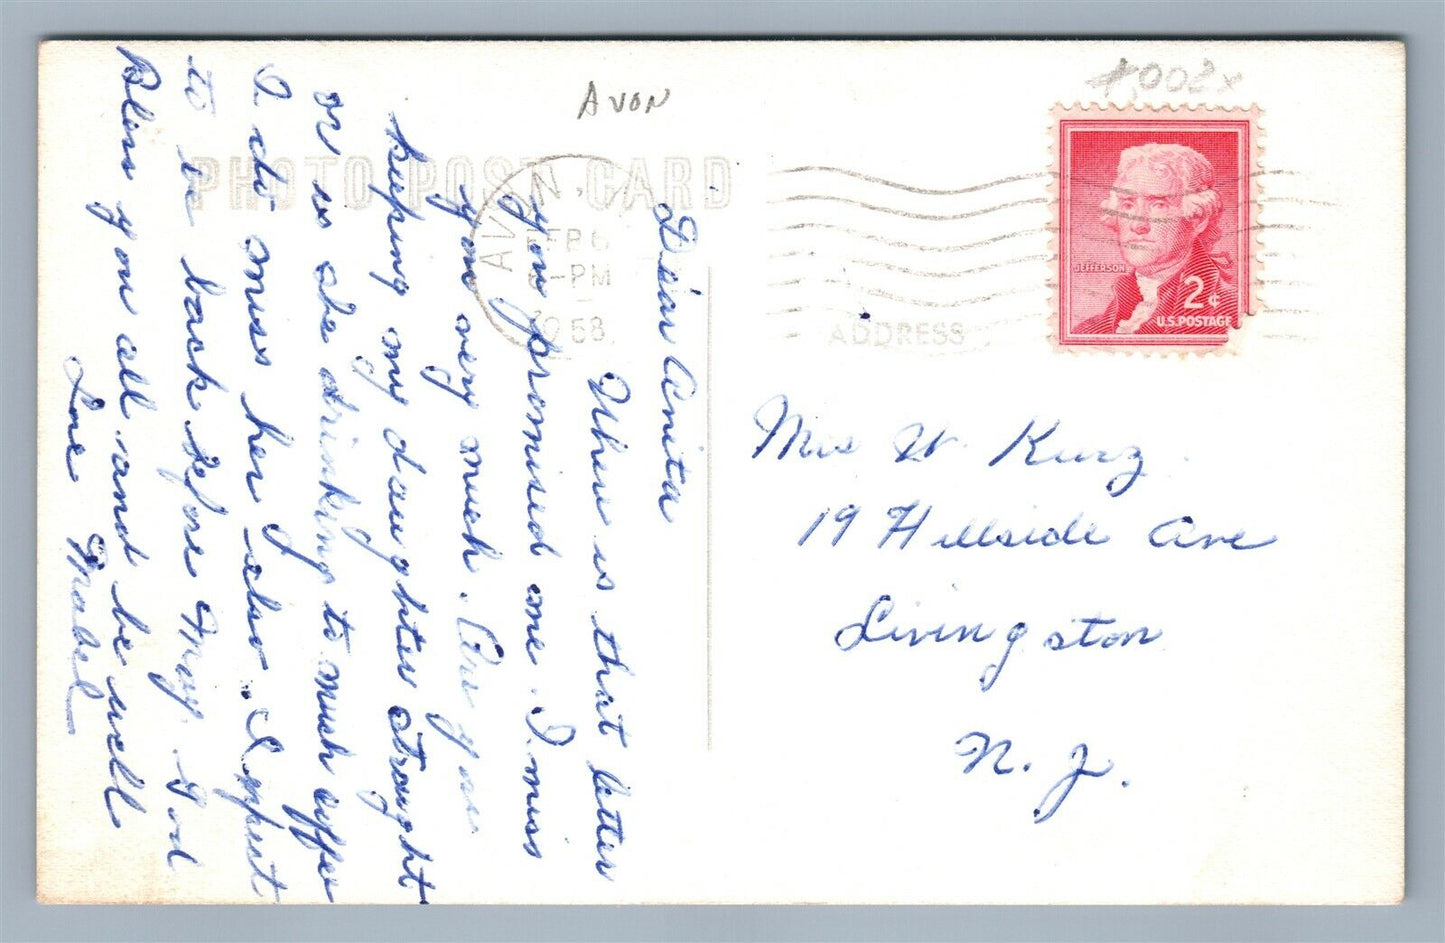 AVON
#002x
PHOTO POST CARD
AVON
FEB 6
-PM
1958
ADDRESS
JEFFERSON
2¢
U.S. POSTAGE
Dear Anita
When is that letter
you promised me. I miss
you very much. Are you
keeping my daughter straught
or is she drinking to mush coffee
I do miss her also. I expect
to be back before May. God
Bless you all and be well
Love Mabel
Mrs W. Kurz
19 Hillside Ave
Livingston
N. J.